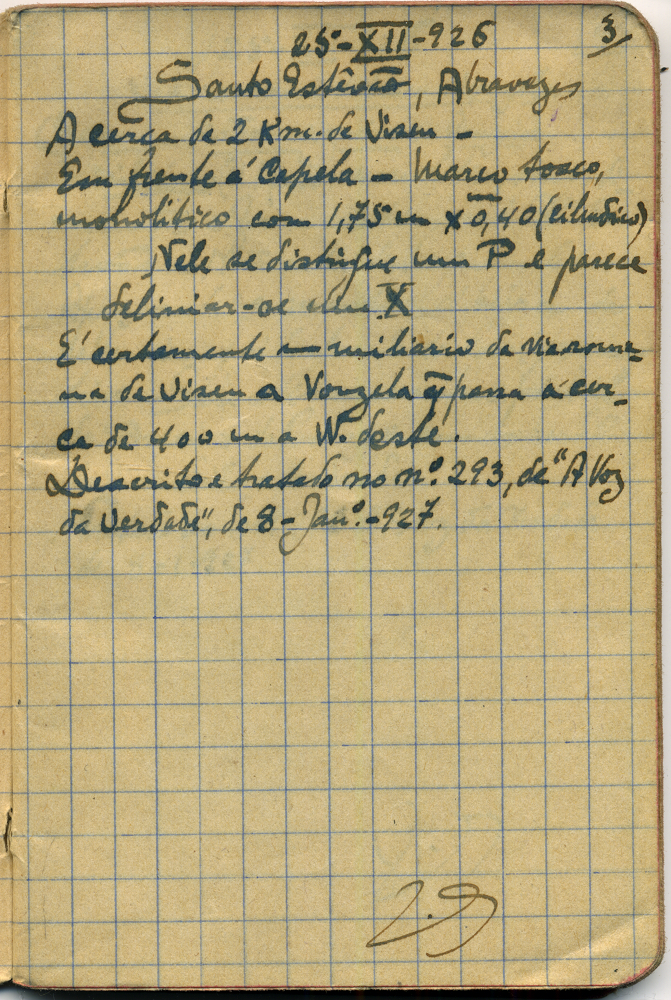 3
25-XII-926
Santo Estêvão, Abravezes
A cerca de 2 Km. de Viseu -
Em frente á Capela - Marco tosco,
monolitico com 1,75 m x 0,40 (cilindrico)
Nele se distingue um P e parece
delimiar-se um X
E' certamente um miliario da via roma-
na de Viseu a Vouzela q̄ passa á cer-
ca de 400 m a W. deste.
Descrito e tratado no nº. 293, da "A Voz
da Verdade", de 8-Janº.-927.